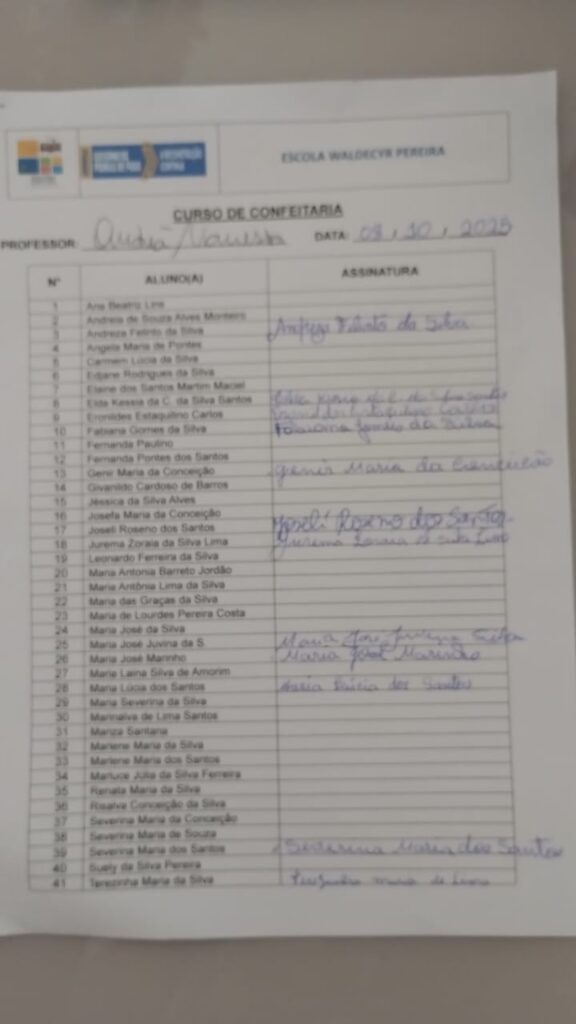 ESCOLA WALDECYR PEREIRA
CURSO DE CONFEITARIA
PROFESSOR: DATA: 08, 10, 2025
N° ALUNO(A) ASSINATURA
1 Ana Beatriz Lira
2 Andreia de Souza Alves Monteiro
3 Andreza Felinto da Silva Andreza Felinto da Silva
4 Angela Maria de Pontes
5 Carmem Lúcia da Silva
6 Edjane Rodrigues da Silva
7 Elaine dos Santos Martim Maciel
8 Elda Kessia da C. da Silva Santos
9 Eronildes Estaquilino Carlos
10 Fabiana Gomes da Silva Fabiana Gomes da Silva
11 Fernanda Paulino
12 Fernanda Pontes dos Santos
13 Genir Maria da Conceição Genir Maria da Conceição
14 Givanildo Cardoso de Barros
15 Jéssica da Silva Alves
16 Josefa Maria da Conceição
17 Joseli Roseno dos Santos Joseli Roseno dos Santos
18 Jurema Zoraia da Silva Lima Jurema Zoraia da Silva Lima
19 Leonardo Ferreira da Silva
20 Maria Antonia Barreto Jordão
21 Maria Antônia Lima da Silva
22 Maria das Graças da Silva
23 Maria de Lourdes Pereira Costa
24 Maria José da Silva
25 Maria José Juvina da S. Maria José Juvina Silva
26 Maria José Marinho Maria José Marinho
27 Maria Laina Silva de Amorim
28 Maria Lúcia dos Santos Maria Lúcia dos Santos
29 Maria Severina da Silva
30 Marinalva de Lima Santos
31 Mariza Santana
32 Marlene Maria da Silva
33 Marlene Maria dos Santos
34 Marluce Julia da Silva Ferreira
35 Renata Maria da Silva
36 Risalva Conceição da Silva
37 Severina Maria da Conceição
38 Severina Maria de Souza
39 Severina Maria dos Santos Severina Maria dos Santos
40 Suely da Silva Pereira
41 Terezinha Maria da Silva